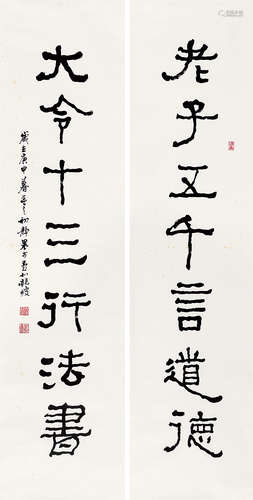 老子五千言道德
大令十三行法書
歲在庚申暮春之初